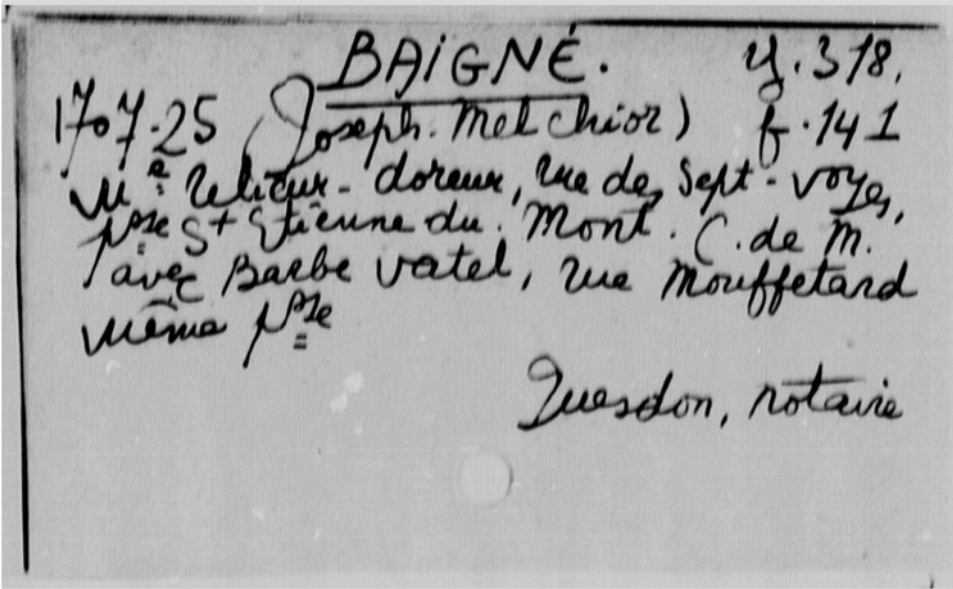 BAIGNÉ. Y. 318.
1707-25 (Joseph. Melchior) f. 141
Me relieur-doreur, rue des Sept-voyes,
psse St Etienne du Mont. C. de M.
avec Barbe Vatel, rue Mouffetard
même psse
Quesdon, notaire